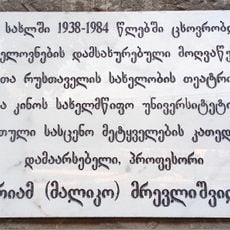 სახლში 1938-1984 წლებში ცხოვრობდ
ელოვნების დამსახურებული მოღვაწე
თა რუსთაველის სახელობის თეატრი
ა კინოს სახელმწიფო უნივერსიტეტი
თული სასცენო მეტყველების კათედ
დამაარსებელი, პროფესორი
რიამ (მალიკო) მრევლიშვი